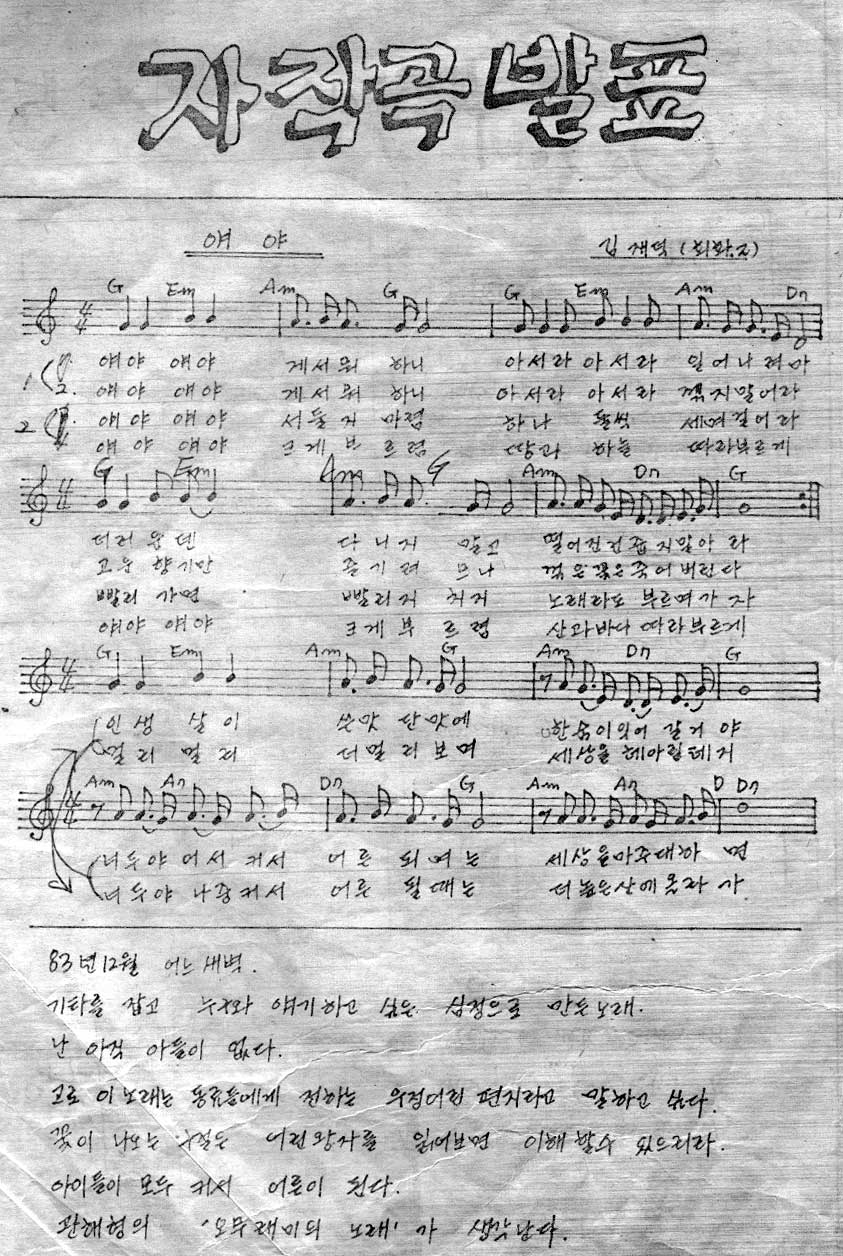 자작곡발표
얘야
김재덕 (회화.2)
G Em Am G G Em Am D7
1 얘야 얘야 게서 뭐 하니 아서라 아서라 일어나려마
2. 얘야 얘야 게서 뭐 하니 아서라 아서라 꺾지말어라
2 얘야 얘야 서둘지 마렴 하나 둘씩 세며걸어라
4 얘야 얘야 크게 부르렴 땅과 하늘 따라부르게
G Em Am G Am D7 G
더러운덴 다니지 말고 떨어진건 줍지말아라
고운 향기만 즐기려므나 꺾은꽃은죽어버린다
빨리 가면 빨리지쳐져 노래라도 부르며가자
얘야 얘야 크게 부르렴 산과바다 따라부르게
G Em Am G Am D7 G
인생살이 쓴맛 단맛에 한숨이있어 갈거야
멀리 멀리 더멀리보며 세상을헤아릴테지
Am A7 D7 G Am A7 D D7
너두야 어서 커서 어른 되며는 세상을마주대하면
너두야 나중커서 어른 될때는 더높은산에올라가
83년 12월 어느 새벽.
기타를 잡고 누가와 얘기하고 싶은 심정으로 만든노래.
난 아직 아들이 없다.
고로 이 노래는 동료들에게 전하는 우정어린 편지라고 말하고 싶다.
꽃이 나오는 구절은 어린왕자를 읽어보면 이해할수 있으리라.
아이들이 모두 커서 어른이 된다.
관해형의 '오무래미의 노래' 가 생각난다.